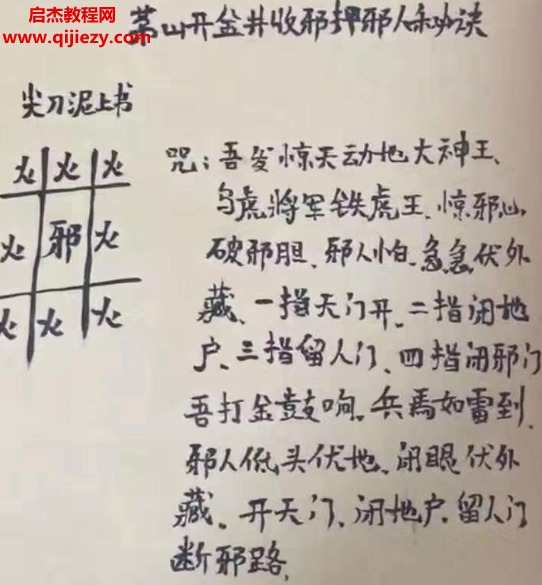 启杰教育网
www.qijiezy.com
茅山开金井收邪押邪人秘诀
尖刀泥上书
火 火 火
火 邪 火
火 火 火
咒：吾发惊天动地大神王、
乌虎将军铁虎王、惊邪心、
破邪胆、邪人怕、急急伏外
藏、一指天门开、二指闭地
户、三指留人门、四指闭邪门
吾打金鼓响、兵馬如雷到、
邪人低头伏地、闭眼伏外
藏、开天门、闭地户、留人门
断邪路、